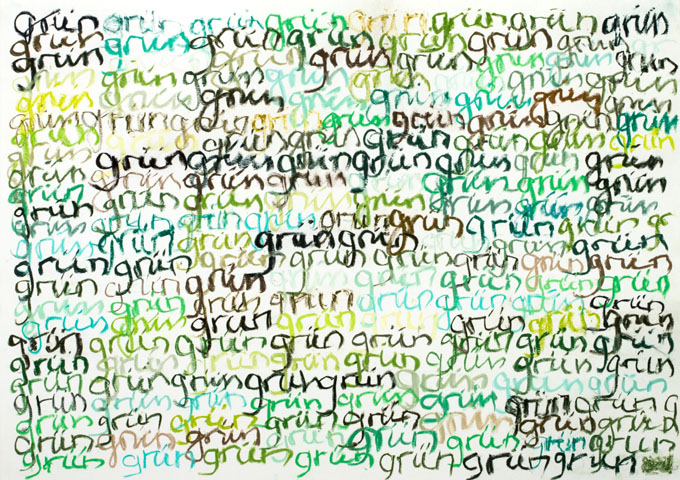 grün grün grün grün grün grün grün grün
grün grün grün grün grün grün grün
grün grün grün grün grün grün grün grün
grün grün grün grün grün grün grün grün
grün grün grün grün grün grün grün grün
grün grün grün grün grün grün grün grün grün
grün grün grün grün grün grün grün grün
grün grün grün grün grün grün grün grün
grün grün grün grün grün grün grün grün
grün grün grün grün grün grün grün grün
grün grün grün grün grün grün grün grün gr
grün grün grün grün grün grün grün grün
grün grün grün grün grün grün grün grün
grün grün grün grün grün grün grün grün
grün grün grün grün grün grün grün grün
grün grün grün grün grün grün grün grün
grün grün grün grün grün grün grün grün
grün grün grün grün grün grün grün grün
grün grün grün grün grün grün grün grün
grün grün grün grün grün grün grün grün g
grün grün grün grün grün grün grün grün
grün grün grün grün grün grün grün grün
grün grün grün grün grün grün grün